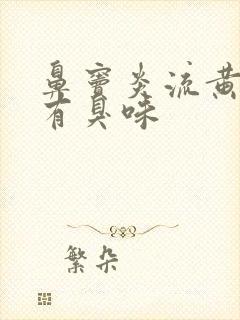 鼻窦炎流黄
有臭味
繁朵